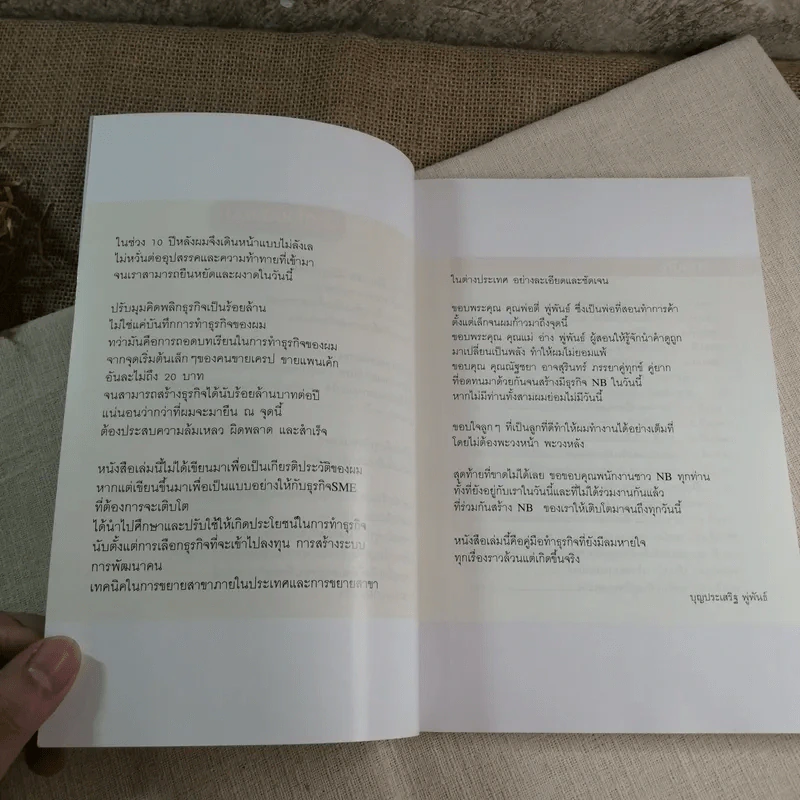 ในช่วง 10 ปีหลังผมจึงเดินหน้าแบบไม่ลังเล
ไม่หวั่นต่ออุปสรรคและความท้าทายที่เข้ามา
จนเราสามารถยืนหยัดและผงาดในวันนี้
ปรับมุมคิดพลิกธุรกิจเป็นร้อยล้าน
ไม่ใช่แค่บันทึกการทำธุรกิจของผม
ทว่ามันคือการถอดบทเรียนในการทำธุรกิจของผม
จากจุดเริ่มต้นเล็กๆของคนขายเครป ขายแพนเค้ก
อันละไม่ถึง 20 บาท
จนสามารถสร้างธุรกิจได้นับร้อยล้านบาทต่อปี
แน่นอนว่ากว่าที่ผมจะมายืน ณ จุดนี้
ต้องประสบความล้มเหลว ผิดพลาด และสำเร็จ
หนังสือเล่มนี้ไม่ได้เขียนมาเพื่อเป็นเกียรติประวัติของผม
หากแต่เขียนขึ้นมาเพื่อเป็นแบบอย่างให้กับธุรกิจSME
ที่ต้องการจะเติบโต
ได้นำไปศึกษาและปรับใช้ให้เกิดประโยชน์ในการทำธุรกิจ
นับตั้งแต่การเลือกธุรกิจที่จะเข้าไปลงทุน การสร้างระบบ
การพัฒนาคน
เทคนิคในการขยายสาขาภายในประเทศและการขยายสาขา
ในต่างประเทศ อย่างละเอียดและชัดเจน
ขอบพระคุณ คุณพ่อตี๋ พู่พันธ์ ซึ่งเป็นพ่อที่สอนทำการค้า
ตั้งแต่เล็กจนผมก้าวมาถึงจุดนี้
ขอบพระคุณ คุณแม่ อ่าง พู่พันธ์ ผู้สอนให้รู้จักนำคำดูถูก
มาเปลี่ยนเป็นพลัง ทำให้ผมไม่ยอมแพ้
ขอบคุณ คุณณัฐชยา อาจสุรินทร์ ภรรยาคู่ทุกข์ คู่ยาก
ที่อดทนมาด้วยกันจนสร้างมีธุรกิจ NB ในวันนี้
หากไม่มีท่านทั้งสามผมย่อมไม่มีวันนี้
ขอบใจลูกๆ ที่เป็นลูกที่ดีทำให้ผมทำงานได้อย่างเต็มที่
โดยไม่ต้องพะวงหน้า พะวงหลัง
สุดท้ายที่ขาดไม่ได้เลย ขอขอบคุณพนักงานชาว NB ทุกท่าน
ทั้งที่ยังอยู่กับเราในวันนี้และที่ไม่ได้ร่วมงานกันแล้ว
ที่ร่วมกันสร้าง NB ของเราให้เติบโตมาจนถึงทุกวันนี้
หนังสือเล่มนี้คือคู่มือทำธุรกิจที่ยังมีลมหายใจ
ทุกเรื่องราวล้วนแต่เกิดขึ้นจริง
บุญประเสริฐ พู่พันธ์